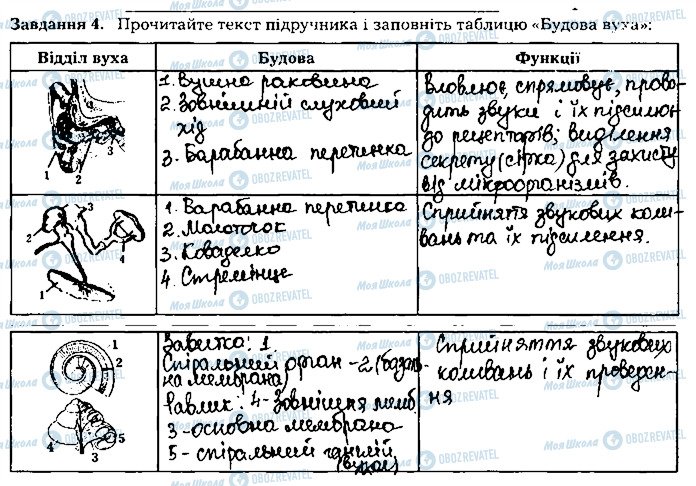 Завдання 4. Прочитайте текст підручника і заповніть таблицю «Будова вуха»:
Відділ вуха Будова Функції
1. Вушна раковина
2. Зовнішній слуховий
хід
3. Барабанна перетинка
Вловлює, спрямовує, прово-
дить звуки і їх підсилює
до рецепторів; виділення
секрету (сірка) для захисту
від мікроорганізмів.
1 2 3
1. Барабанна перетинка
2. Молоточок
3. Коваделко
4. Стремінце
Сприйняття звукових коли-
вань та їх підсилення.
2 3 4 1
Завитка: 1
Спіральний орган - 2 (базаль-
на мембрана)
Равлик: 4 - Зовнішня
3 - основна мембрана
5 - спіральний
Сприйняття звукових
коливань і їх проведен-
ня
1 2 4 3 5
Моя Школа OBOZREVATEL